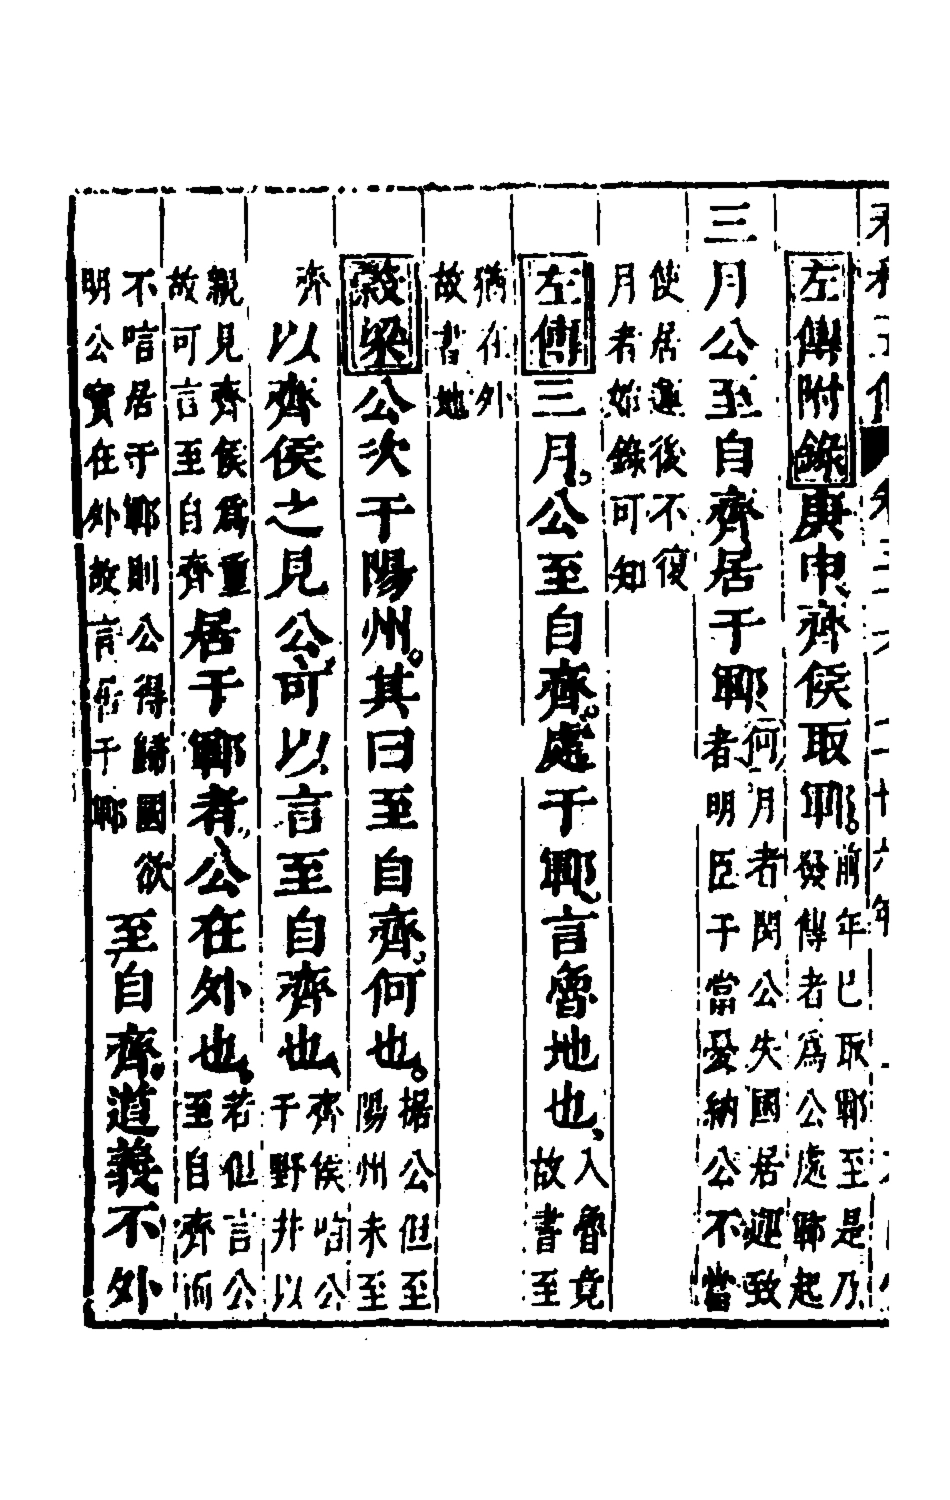 左傳附錄庚申齊侯取鄆。前年已取鄆至是乃
發傳者為公處鄆起
三月公至自齊居于鄆何月者閔公失國居運致
者明臣子當憂納公不當
使居運後不復
月者始錄可知
左傳三月公至自齊處于鄆言魯地也入魯竟
故書至
猶在外
故書地
穀梁公次于陽州其曰至自齊何也據公但至
陽州未至
齊
以齊侯之見公可以言至自齊也齊侯唁公
于野井以
親見齊侯為重
故可言至自齊
居于鄆者公在外也若但言公
至自齊而
不唁居于鄆則公得歸國欲
明公實在外故言居于鄆
至自齊道義不外